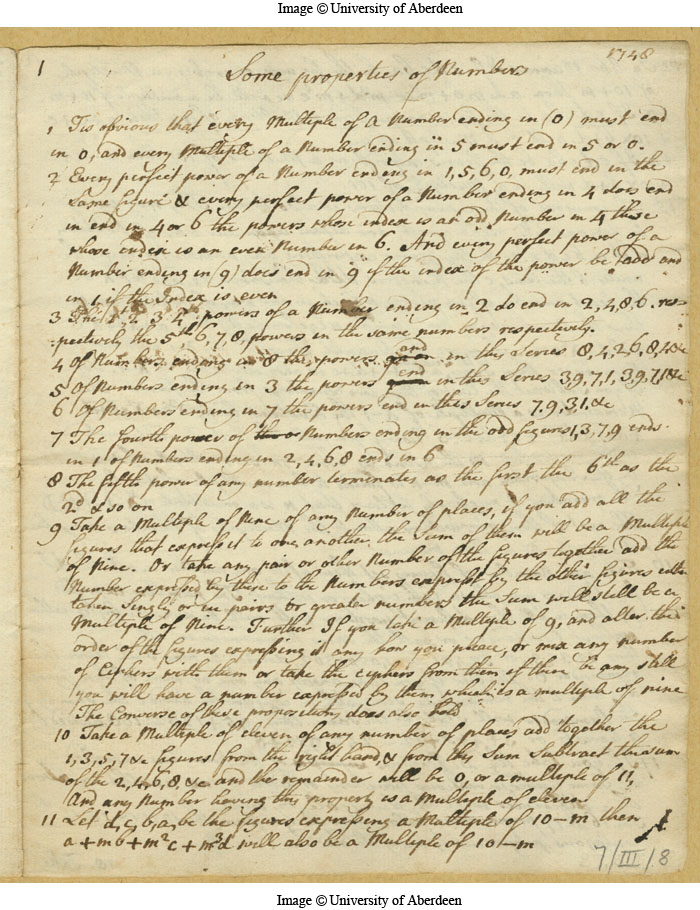 Image © University of Aberdeen
1
1748
Some properties of Numbers
1 Tis obvious that every Multiple of a Number ending in (0) must end
in 0, and every Multiple of a Number ending in 5 must end in 5 or 0.
2 Every perfect power of a Number ending in 1, 5, 6, 0, must end in the
same figure & every perfect power of a Number ending in 4 does end
in end in 4 or 6 the powers whose index is an odd Number in 4 those
whose index is an even Number in 6. And every perfect power of a
Number ending in (9) does end in 9 if the index of the power be odd and
in 1 if the Index is even
3 The 1, 2, 3, 4 powers of a Number ending in 2 do end in 2, 4, 8, 6. res-
pectively the 5th, 6, 7, 8, powers in the same numbers respectively.
4 Of Numbers ending in 8 the powers end in this Series 8, 4, 2, 6, 8, 4 &c
5 Of Numbers ending in 3 the powers end in this Series 3, 9, 7, 1, 3, 9, 7, 1 &c
6 Of Numbers ending in 7 the powers end in this Series 7. 9, 3, 1. &c
7 The fourth power of Numbers ending in the odd figures 1, 3, 7, 9 ends.
in 1 of Numbers ending in 2, 4, 6, 8 ends in 6
8 The fifth power of any number terminates as the first the 6th as the
2d & so on
9 Take a Multiple of Nine of any Number of places, if you add all the
figures that express it to one another, the Sum of them will be a Multiple
of Nine. Or take any pair or other Number of the figures together add the
Number expressed by these to the Numbers exprest by the other figures either
taken singly or in pairs or greater numbers the Sum will still be a
Multiple of Nine. Further If you take a Multiple of 9, and alter the
order of the figures expressing it any how you please, or mix any number
of Cyphers with them or take the ciphers from them if there be any still
you will have a number expressed by them which is a multiple of nine
The Converse of these propositions does also hold
10 Take a Multiple of eleven of any number of places add together the
1, 3, 5, 7 &c figures from the right hand, & from this Sum Subtract the sum
of the 2, 4, 6, 8, &c and the remainder will be 0, or a multiple of 11,
And any Number having this property is a Multiple of eleven
11 Let d, c, b, a, be the figures expressing a Multiple of 10—m then
a + mb + m²c + m³d will also be a Multiple of 10—m
7/III/8
Image © University of Aberdeen